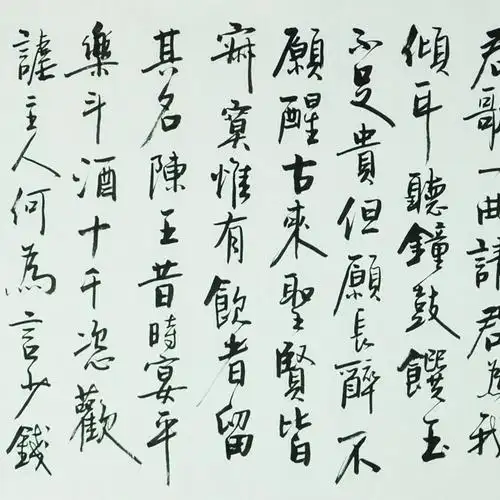 君歌一曲請君為我
傾耳聽鐘鼓饌玉
不足貴但願長醉不
願醒古來聖賢皆
寂寞惟有飲者留
其名陳王昔時宴平
樂斗酒十千恣歡
謔主人何為言少錢